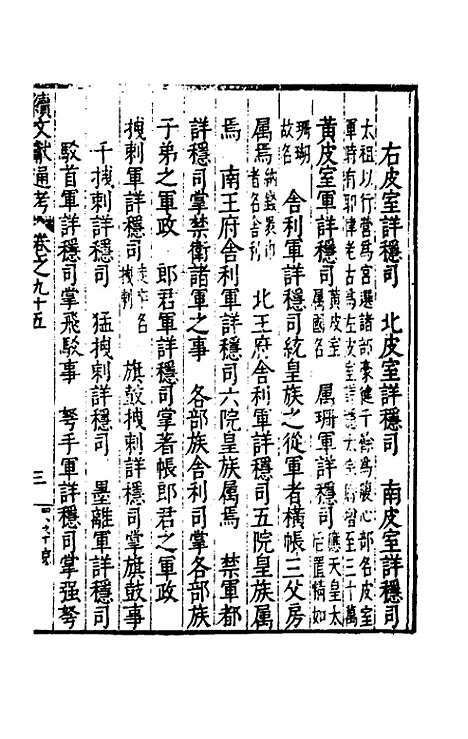 右皮室詳穩司　北皮室詳穩司　南皮室詳穩司
太祖以行營爲宮選諸部豪健千餘爲腹心部名皮室
軍時有耶律老古爲左皮室詳穩太宗增至三十萬
黃皮室軍詳穩司　黃皮室
屬國名　属珊軍詳穩司　應天皇太
后置精如
珊瑚
故名　舍利軍詳穩司統皇族之從軍者橫帳三父房
属焉　者名舍利　北王府舍利軍詳穩司五院皇族属
焉　南王府舍利軍詳穩司六院皇族属焉　禁軍都
詳穩司掌禁衛諸軍之事　各部族舍利司掌各部族
子弟之軍政　郎君軍詳穩司掌著帳郎君之軍政
拽剌軍詳穩司　走卒名
拽剌　旗鼓拽剌詳穩司掌旗鼓事
千拽剌詳穩司　猛拽剌詳穩司　墨離軍詳穩司
駁首軍詳穩司掌飛駁事　弩手軍詳穩司掌强弩
續文獻通考　卷之九十五　三